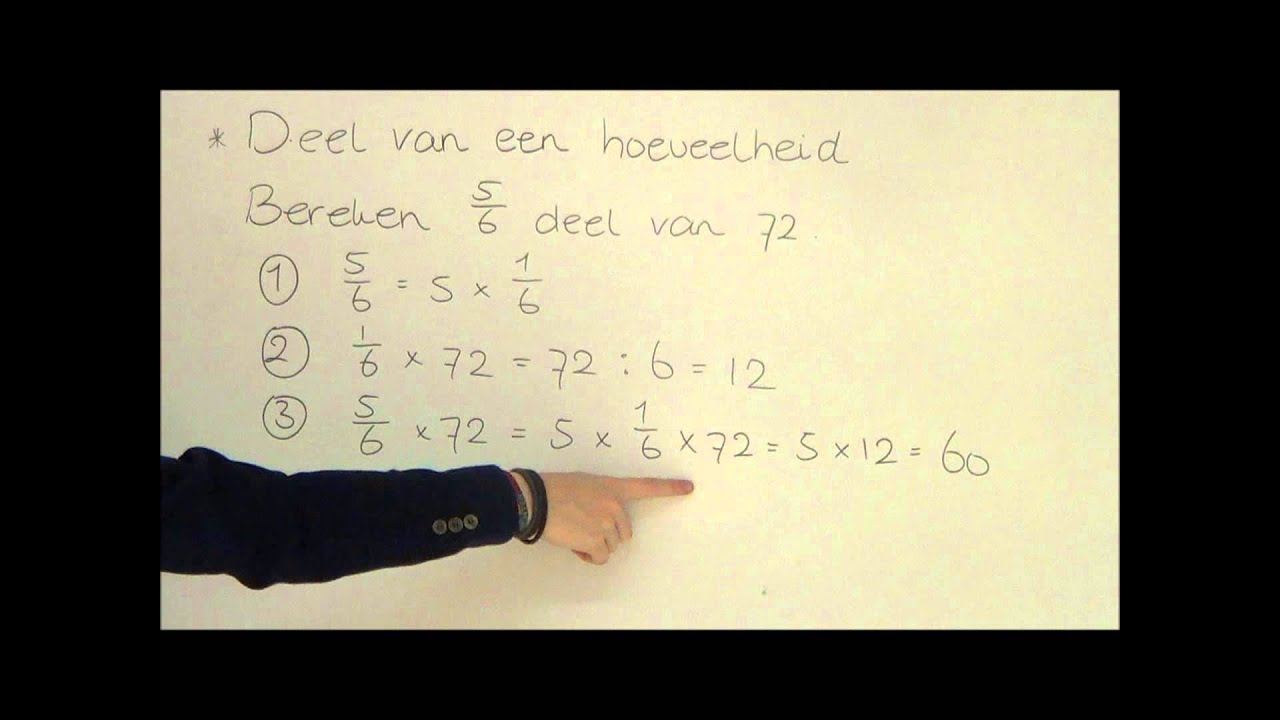 * Deel van een hoeveelheid
Bereken 5/6 deel van 72.
① 5/6 = 5 × 1/6
② 1/6 × 72 = 72 : 6 = 12
③ 5/6 × 72 = 5 × 1/6 × 72 = 5 × 12 = 60